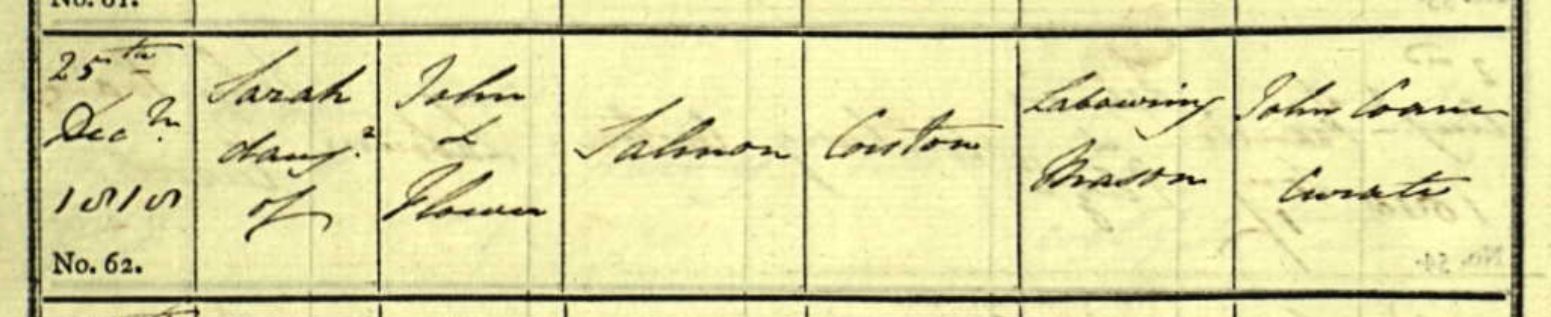 No. 61.
25th
Decr.
1818
No. 62.
Sarah
daugr.
of
John
&
Flower
Salmon
Corston
Labouring
Mason
John
Curate